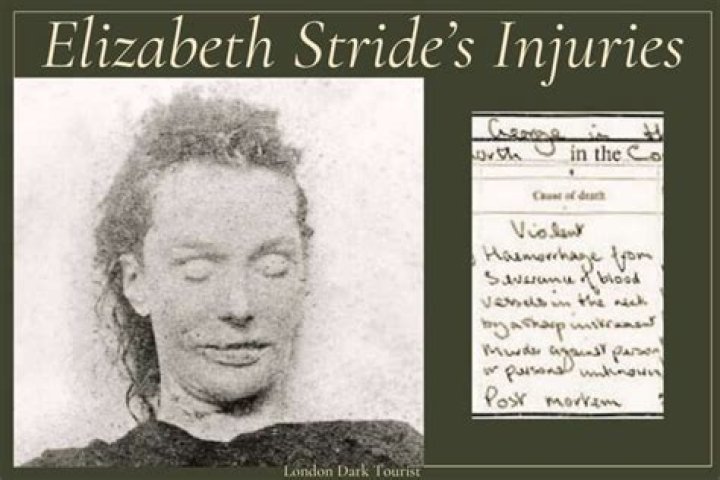 Elizabeth Stride's Injuries
George in th
orth in the Co
Cause of death
Violent
Haemorrhage from
Severance of blood
vessels in the neck
by a sharp instrument
Murder against person
or persons unknown
Post mortem
London Dark Tourist